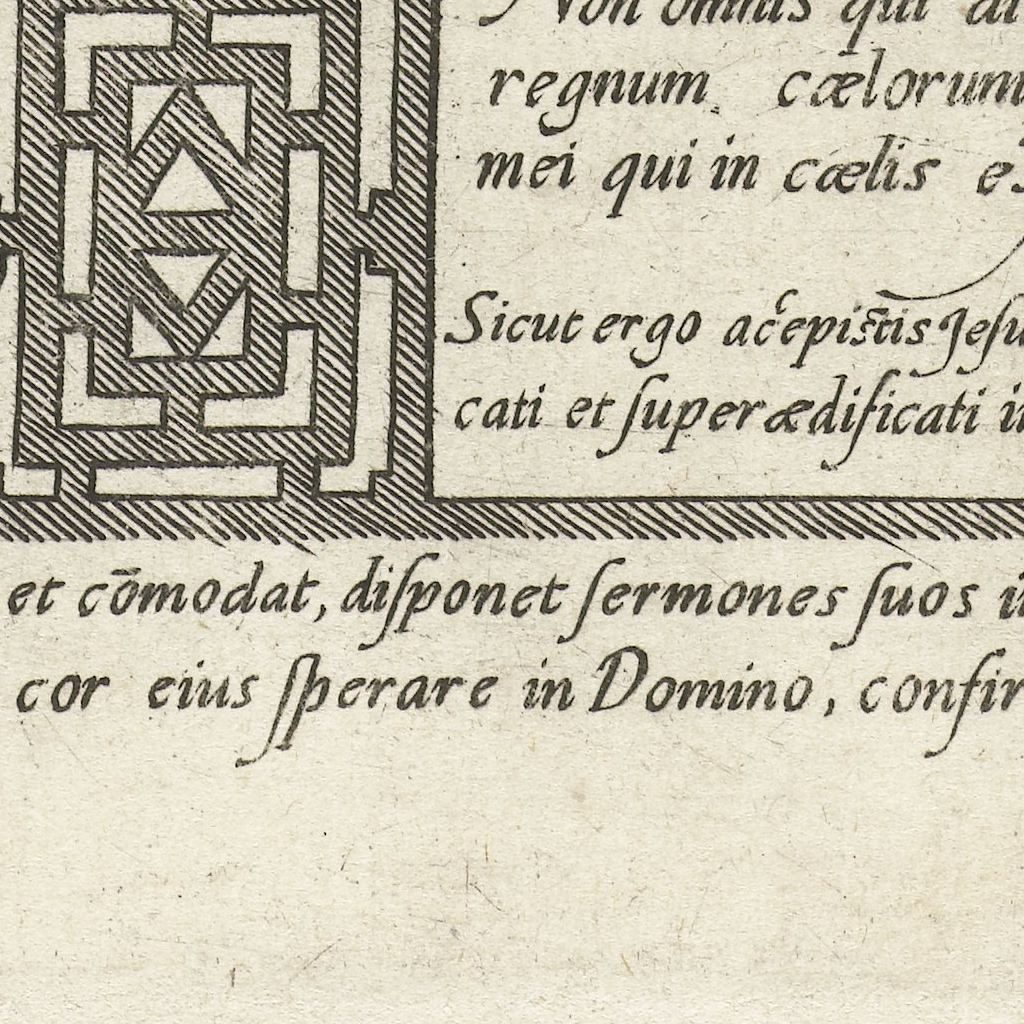 Non omnis qui di
regnum cælorum
mei qui in cælis es
Sicut ergo accepistis Jesu
cati et ſuperædificati in
et cōmodat, diſponet ſermones ſuos in
cor eius ſperare in Domino, confir